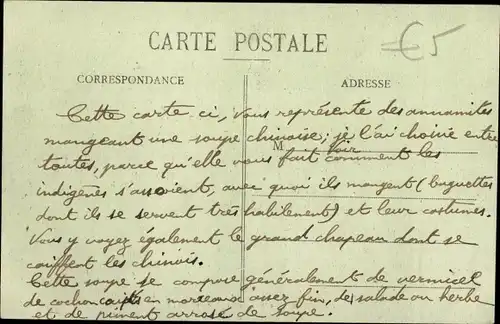 €5
CARTE POSTALE
CORRESPONDANCE
ADRESSE
Cette carte ci, vous représente des annamites
mangeant une soupe chinoise; je l'ai choisie entre
M
toutes, parce qu'elle vous fait voir comment les
indigènes s'assoient, avec quoi ils mangent (baguettes
dont ils se servent très habilement) et leur costumes.
Vous y voyez également le grand chapeau dont se
coiffent les chinois.
Cette soupe se compose généralement de vermicel
de cochon coupé en morceaux assez fin, de salade ou herbe
et de piment arrosé de soupe.